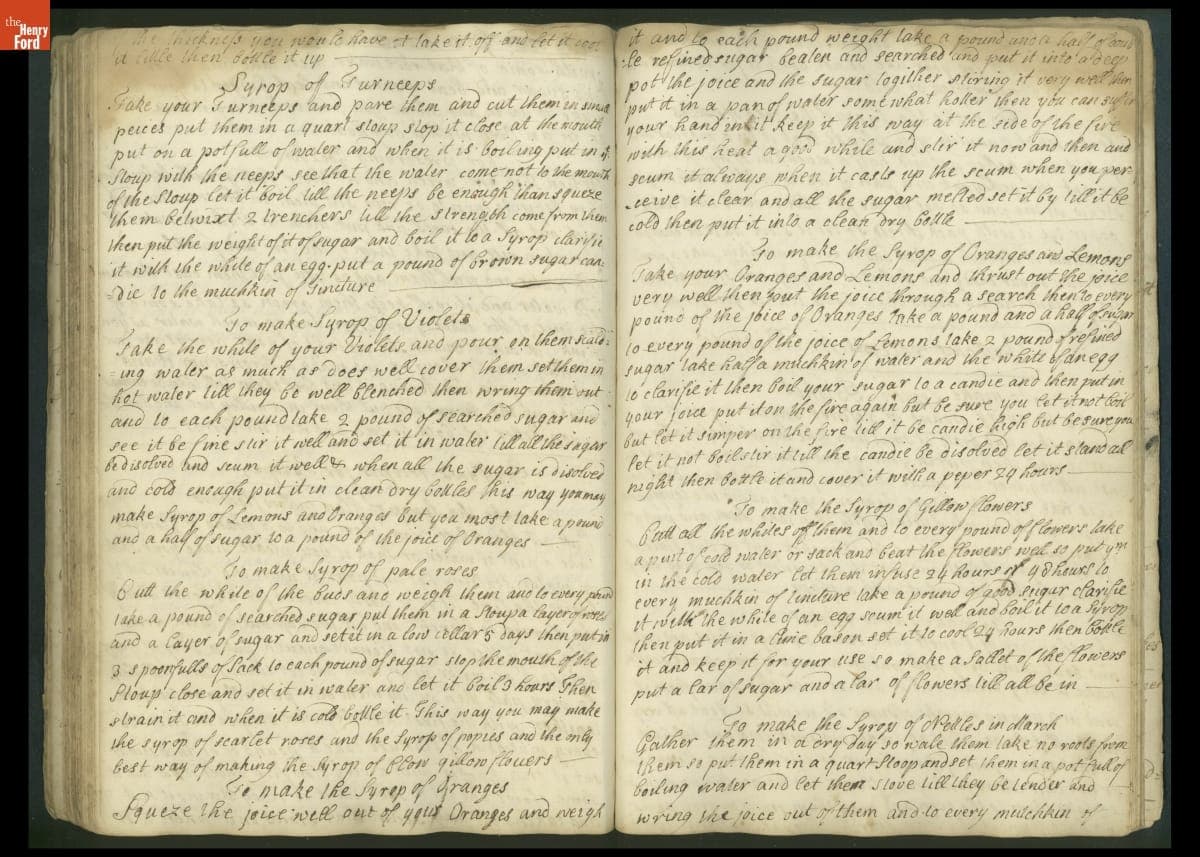 the Henry Ford
the thickness you would have it take it off and let it cool
a litle then botle it up
Syrop of Turneeps
Take your Turneeps and pare them and cut them in small
peices put them in a quart stoup stop it close at the mouth
put on a potfull of water and when it is boiling put in ye
stoup with the neeps see that the water come not to the mouth
of the stoup let it boil till the neeps be enough than squeze
them betwixt 2 trenchers till the strength come from them
then put the weight of it of sugar and boil it to a Syrop clarifie
it with the white of an egg put a pound of brown sugar can=
=die to the muchkin of Tincture
To make Syrop of Violets
Take the white of your Violets and pour on them scald=
=ing water as much as does well cover them set them in
hot water till they be well blenched then wring them out
and to each pound take 2 pound of searched sugar and
see it be fine stir it well and set it in water till all the sugar
be disolved and scum it well & when all the sugar is disolved
and cold enough put it in clean dry bottles this way you may
make Syrop of Lemons and Oranges but you most take a pound
and a half of sugar to a pound of the joice of Oranges
To make Syrop of pale roses
Cutt the white of the buds and weigh them and to every pound
take a pound of searched sugar put them in a stoup a layer of roses
and a layer of sugar and set it in a low cellar 5 days then put in
3 spoonfulls of Sack to each pound of sugar stop the mouth of the
Stoup close and set it in water and let it boil 3 hours Then
strain it and when it is cold bottle it. This way you may make
the syrop of scarlet roses and the Syrops of popies and the only
best way of making the Syrop of Clow gillowflowers
To make the Syrop of Oranges
Squeze the joice well out of your Oranges and weigh
it and to each pound weight take a pound and a half of
refined sugar beaten and searched and put it into a deep
pot the joice and the sugar togither stiring it very well then
put it in a pan of water somewhat hotter then you can suffer
your hand in it keep it this way at the side of the fire
with this heat a good while and stir it now and then and
scum it always when it casts up the scum when you per
ceive it clear and all the sugar melted set it by till it be
cold then put it into a clean dry botle
To make the Syrop of Oranges and Lemons
Take your Oranges and Lemons and thrust out the joice
very well then put the joice through a search then to every
pound of the joice of Oranges take a pound and a half of sugar
to every pound of the joice of Lemons take 2 pound of refined
sugar take half a muchkin of water and the white of an egg
to clarifie it then boil your sugar to a candie and then put in
your joice put it on the fire again but be sure you let it not boil
but let it simper on the fire till it be candie high but be sure you
let it not boil stir it till the candie be disolved let it stand all
night then bottle it and cover it with a peper 24 hours
To make the Syrop of Gillowflowers
Cutt all the whites off them and to every pound of flowers take
a pint of cold water or sack and beat the flowers well so put ym
in the cold water let them infuse 24 hours or 48 hours to
every muchkin of tincture take a pound of good sugar clarifie
it with the white of an egg scum it well and boil it to a Syrop
then put it in a bason set it to cool 24 hours then bottle
it and keep it for your use so make a Sallet of the flowers
put a lar of sugar and a lar of flowers till all be in
To make the Syrop of Nettles in March
Gather them in a dry day so wale them take no roots from
them so put them in a quart Stoop and set them in a pot full of
boiling water and let them stove till they be tender and
wring the joice out of them and to every mutchkin of